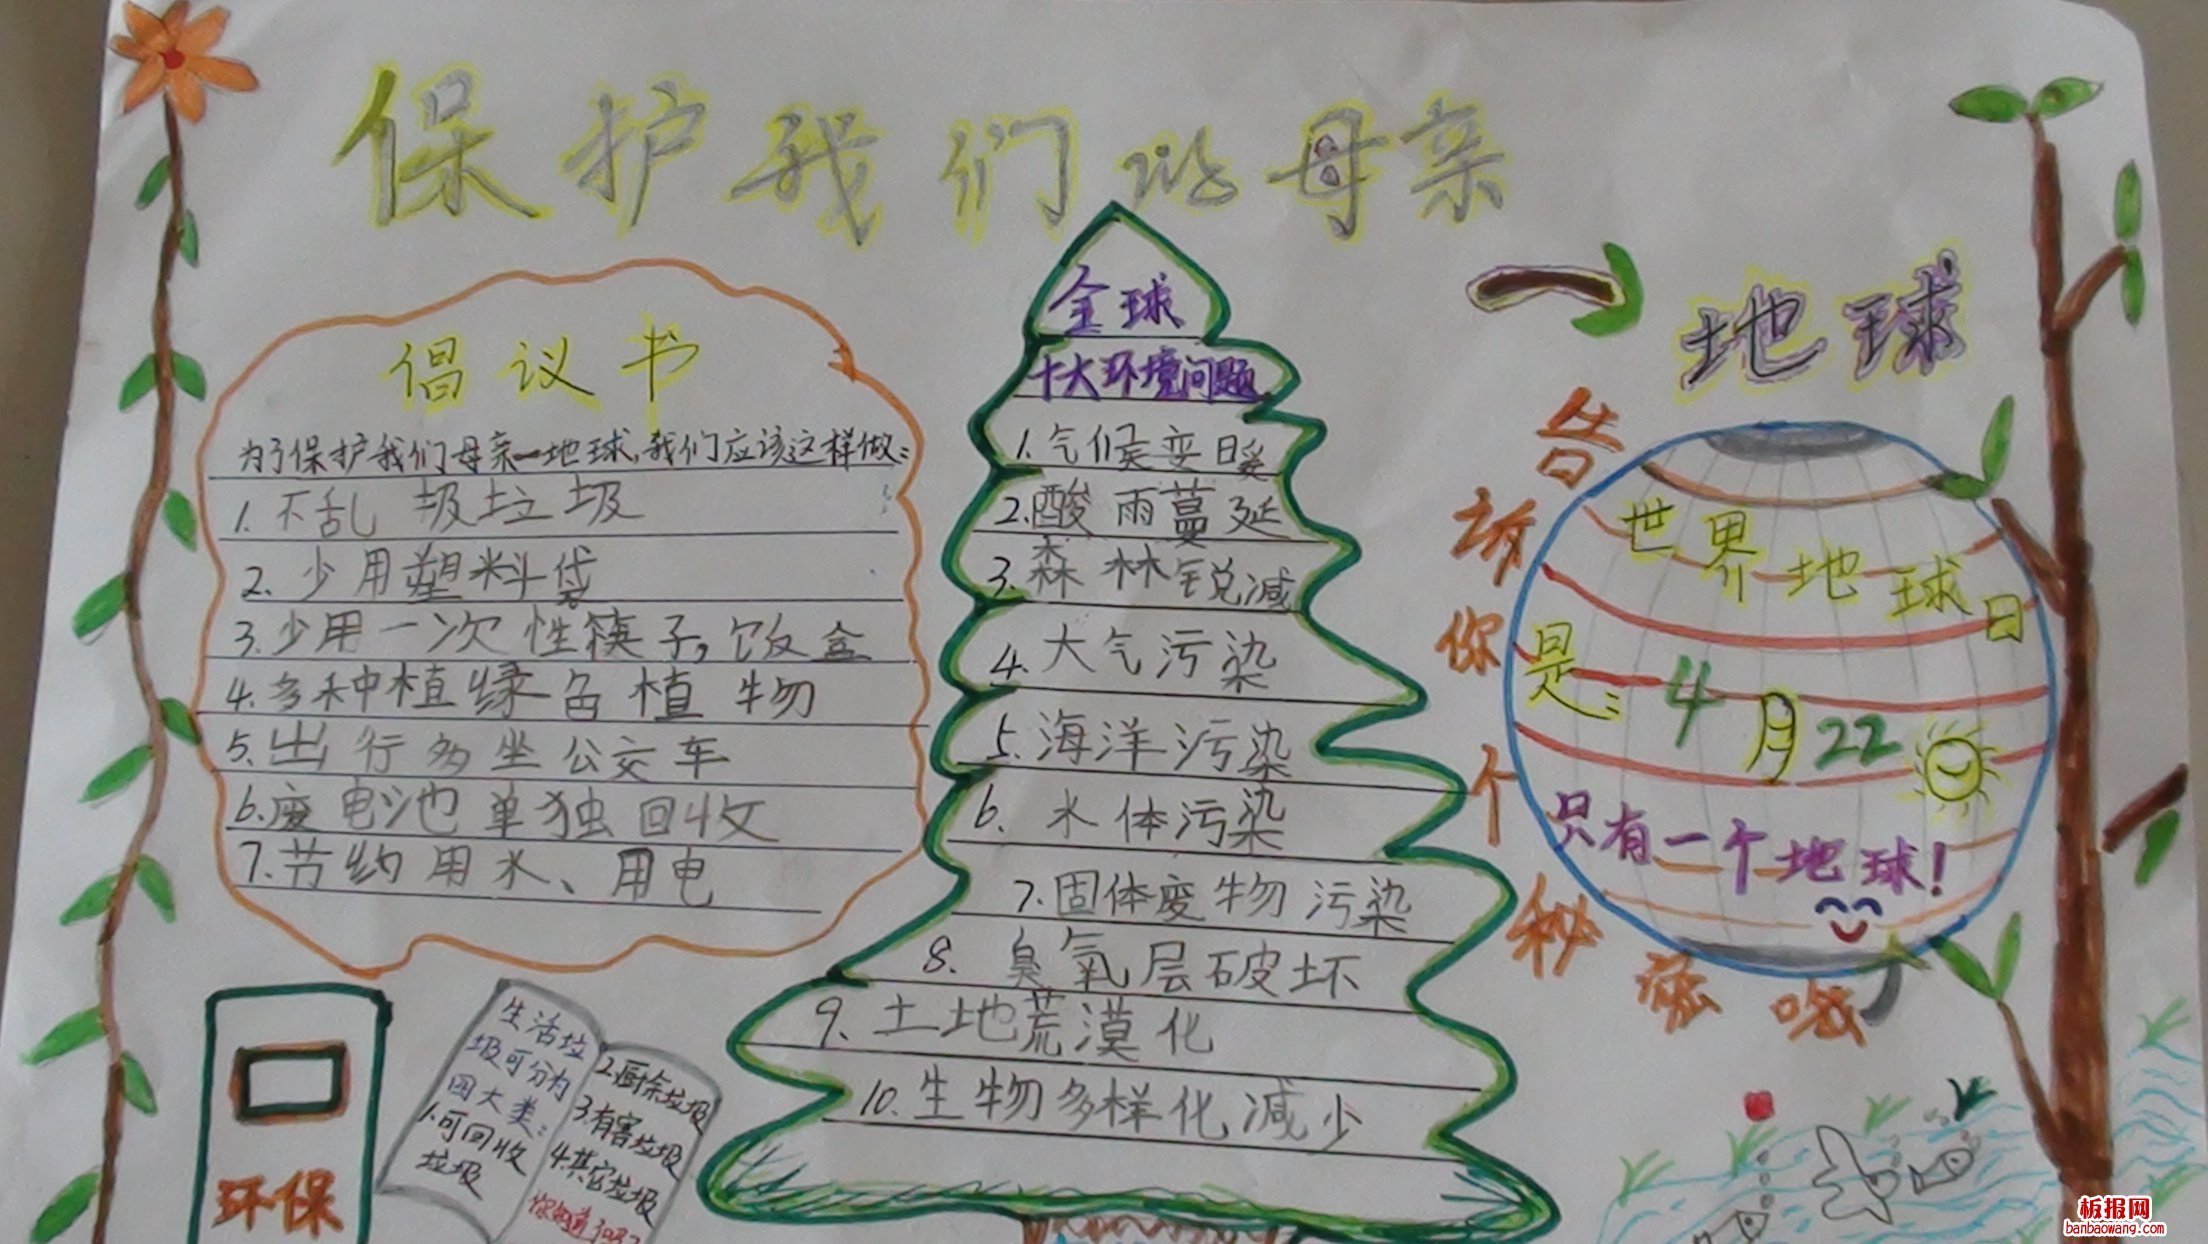 保护我们的母亲
地球
倡议书
为了保护我们母亲一地球,我们应该这样做:
1.不乱圾垃圾
2.少用塑料袋
3.少用一次性筷子,饭盒
4.多种植绿色植物
5.出行多坐公交车
6.废电池单独回收
7.节约用水、用电
全球
十大环境问题
1.气候变暖
2.酸雨蔓延
3.森林锐减
4.大气污染
5.海洋污染
6.水体污染
7.固体废物污染
8.臭氧层破坏
9.土地荒漠化
10.生物多样化减少
告诉你个秘密哦
世界地球日
是:4月22
只有一个地球!
环保
生活垃
圾可分为
四大类:
1.可回收
垃圾
2.厨余垃圾
3.有害垃圾
4.其它垃圾
你知道了吗?
板报网
banbaowang.com